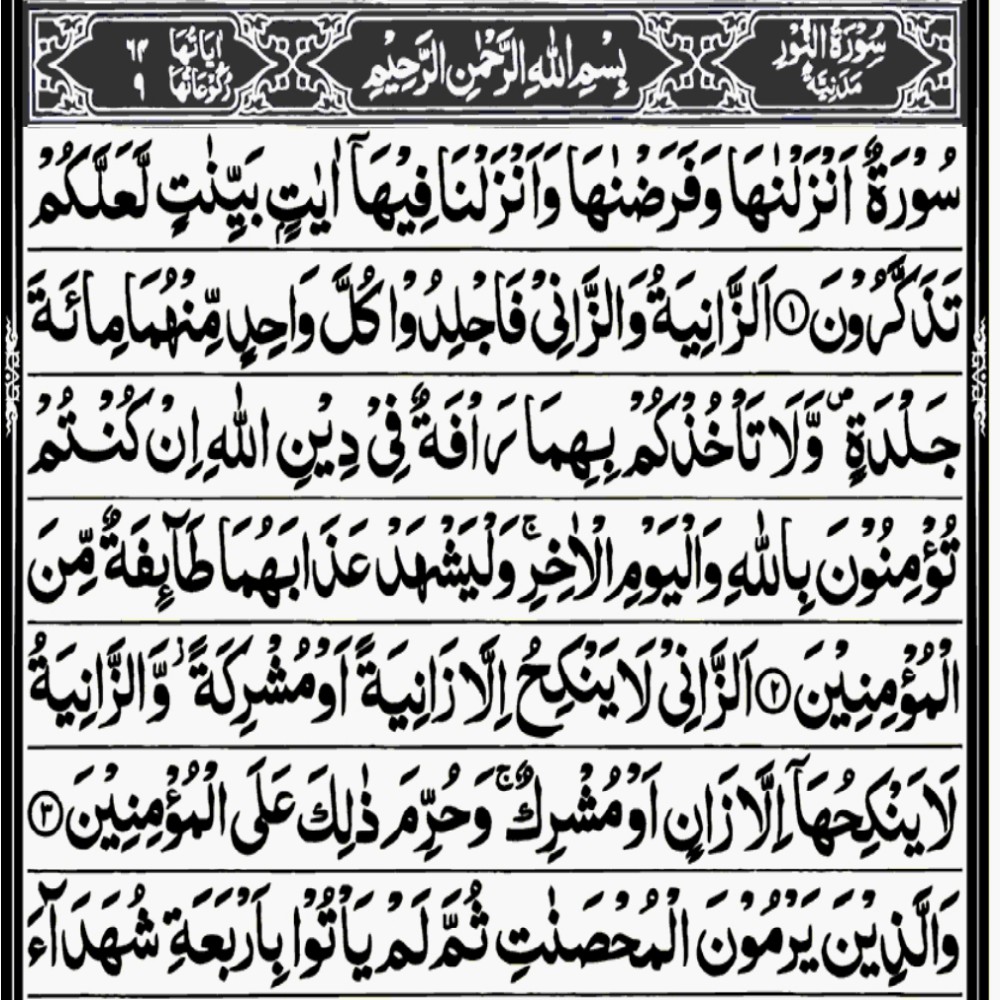 سُوْرَةُ النُّوْرِ مَدَنِيَّةٌ بِسْمِ اللهِ الرَّحْمٰنِ الرَّحِيْمِ اٰيَاتُهَا ٦٤ رُكُوْعَاتُهَا ٩
سُوْرَةٌ اَنْزَلْنٰهَا وَفَرَضْنٰهَا وَاَنْزَلْنَا فِيْهَآ اٰيٰتٍۭ بَيِّنٰتٍ لَّعَلَّكُمْ
تَذَكَّرُوْنَ ① اَلزَّانِيَةُ وَالزَّانِيْ فَاجْلِدُوْا كُلَّ وَاحِدٍ مِّنْهُمَا مِائَةَ
جَلْدَةٍ ۪ وَّلَا تَاْخُذْكُمْ بِهِمَا رَاْفَةٌ فِيْ دِيْنِ اللهِ اِنْ كُنْتُمْ
تُؤْمِنُوْنَ بِاللهِ وَالْيَوْمِ الْاٰخِرِ ۚ وَلْيَشْهَدْ عَذَابَهُمَا طَآئِفَةٌ مِّنَ
الْمُؤْمِنِيْنَ ② اَلزَّانِيْ لَا يَنْكِحُ اِلَّا زَانِيَةً اَوْ مُشْرِكَةً ؗ وَّالزَّانِيَةُ
لَا يَنْكِحُهَآ اِلَّا زَانٍ اَوْ مُشْرِكٌ ۚ وَحُرِّمَ ذٰلِكَ عَلَى الْمُؤْمِنِيْنَ ③
وَالَّذِيْنَ يَرْمُوْنَ الْمُحْصَنٰتِ ثُمَّ لَمْ يَاْتُوْا بِاَرْبَعَةِ شُهَدَآءَ